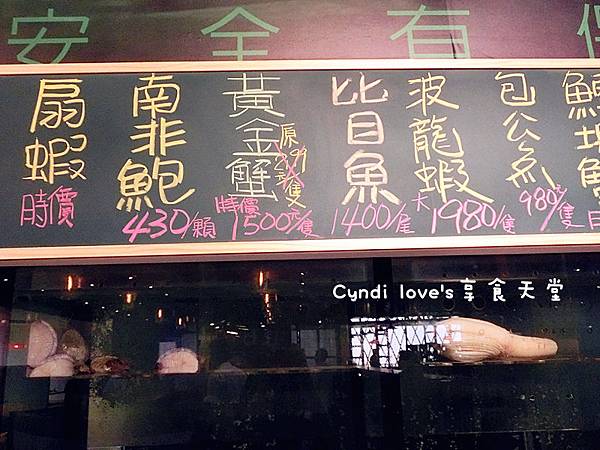 安全有保
扇蝦
時價
南非鮑
430/顆
黃金蟹
特價
1500元/隻
比目魚
1400/尾
波龍蝦
大
1980/隻
包公魚
980元/隻
Cyndi love's享食天堂